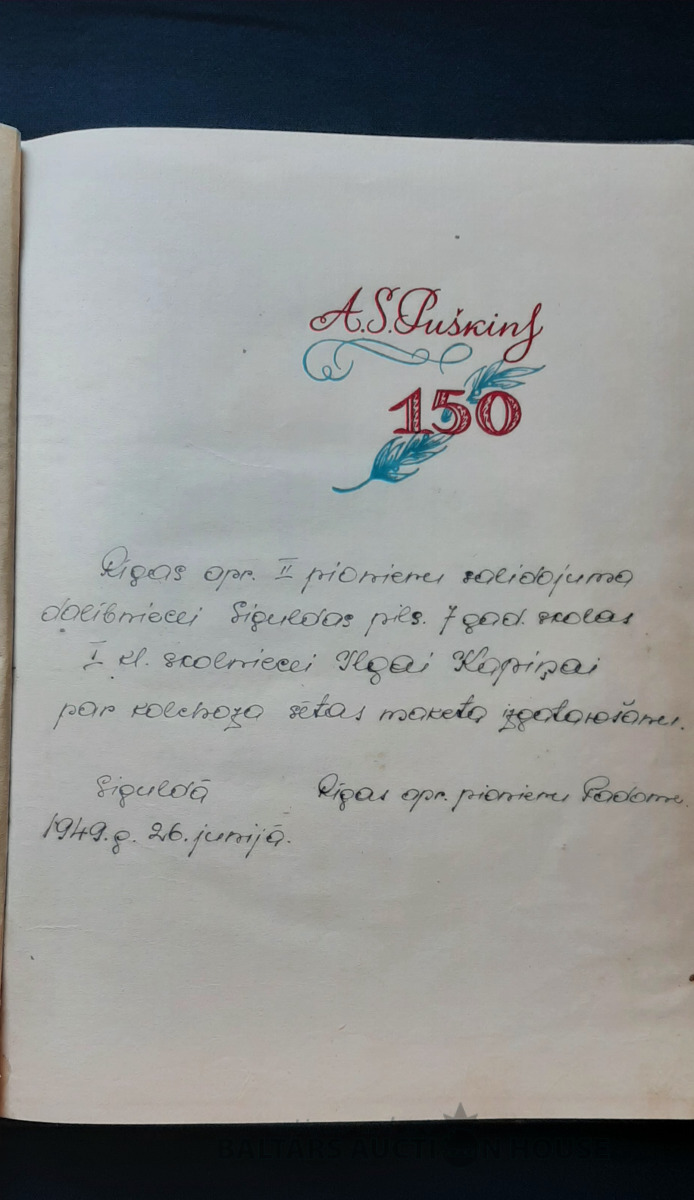 A.S.Puškins
150
Rīgas apr. II pionieru salidojuma
dalībniecei Siguldas pils. 7 gad. skolas
I kl. skolniecei Ilgai Kapiņai
par kolchoza sētas maketa izgatavošanu.
Siguldā Rīgas apr. pionieru Padome.
1949.g. 26. junijā.
BALTARS AUCTION HOUSE